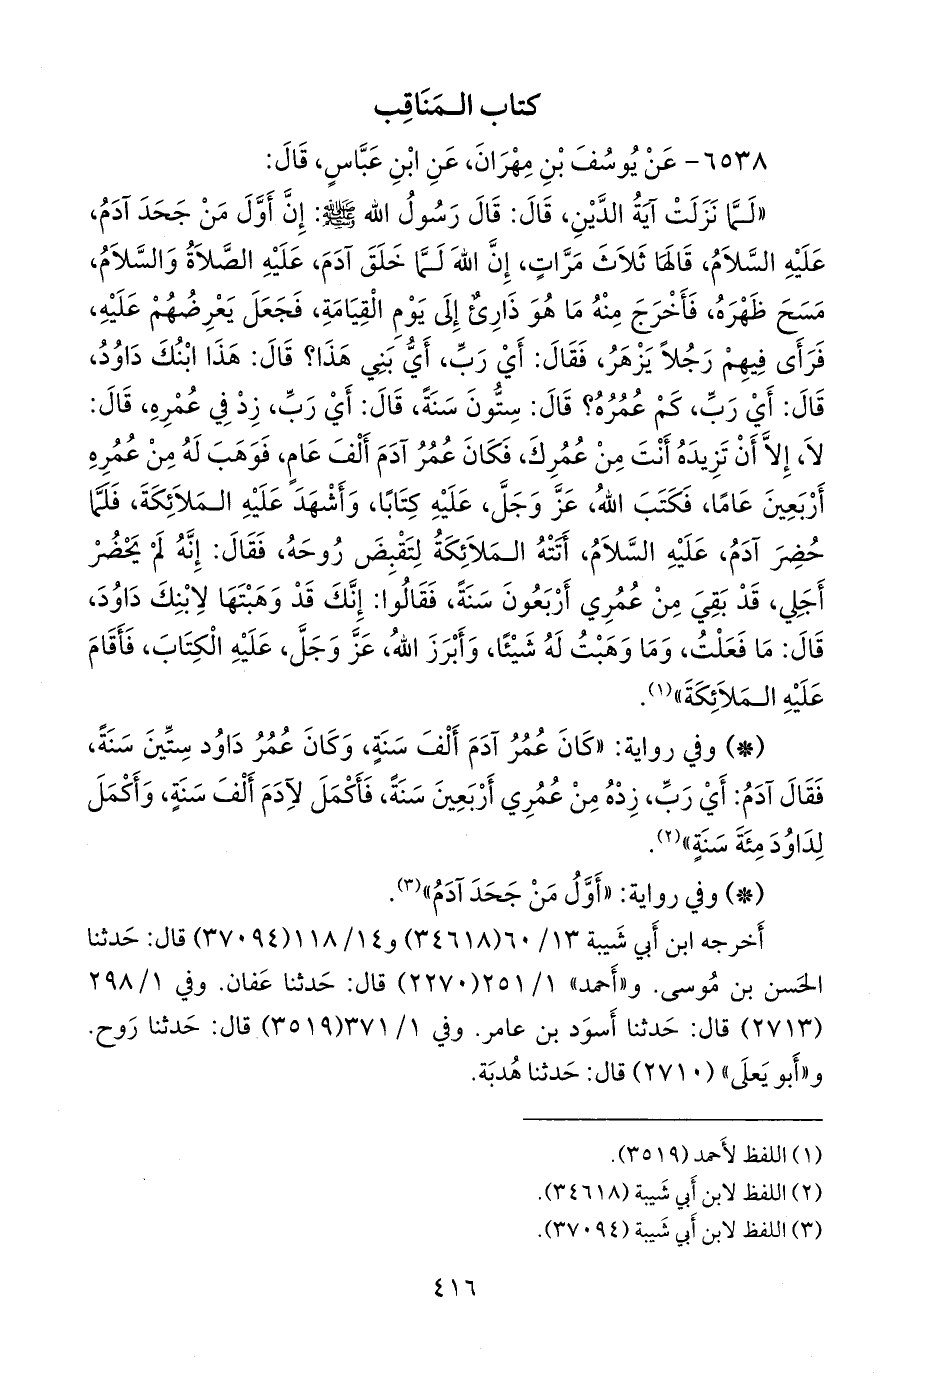 كتاب الـمَنَاقِب
٦٥٣٨- عَنْ يُوسُفَ بْنِ مِهْرَانَ، عَنِ ابْنِ عَبَّاسٍ، قَالَ:
«لَـمَّا نَزَلَتْ آيَةُ الدَّيْنِ، قَالَ: قَالَ رَسُولُ الله ﷺ: إِنَّ أَوَّلَ مَنْ جَحَدَ آدَمُ،
عَلَيْهِ السَّلاَمُ، قَالَهَا ثَلاَثَ مَرَّاتٍ، إِنَّ اللهَ لَـمَّا خَلَقَ آدَمَ، عَلَيْهِ الصَّلاَةُ وَالسَّلاَمُ،
مَسَحَ ظَهْرَهُ، فَأَخْرَجَ مِنْهُ مَا هُوَ ذَارِئٌ إِلَى يَوْمِ الْقِيَامَةِ، فَجَعَلَ يَعْرِضُهُمْ عَلَيْهِ،
فَرَأَى فِيهِمْ رَجُلاً يَزْهَرُ، فَقَالَ: أَيْ رَبِّ، أَيُّ بَنِي هَذَا؟ قَالَ: هَذَا ابْنُكَ دَاوُدُ،
قَالَ: أَيْ رَبِّ، كَمْ عُمُرُهُ؟ قَالَ: سِتُّونَ سَنَةً، قَالَ: أَيْ رَبِّ، زِدْ فِي عُمْرِهِ، قَالَ:
لاَ، إِلاَّ أَنْ تَزِيدَهُ أَنْتَ مِنْ عُمُرِكَ، فَكَانَ عُمُرُ آدَمَ أَلْفَ عَامٍ، فَوَهَبَ لَهُ مِنْ عُمُرِهِ
أَرْبَعِينَ عَامًا، فَكَتَبَ اللهُ، عَزَّ وَجَلَّ، عَلَيْهِ كِتَابًا، وَأَشْهَدَ عَلَيْهِ الـمَلاَئِكَةَ، فَلَمَّا
حُضِرَ آدَمُ، عَلَيْهِ السَّلاَمُ، أَتَتْهُ الـمَلاَئِكَةُ لِتَقْبِضَ رُوحَهُ، فَقَالَ: إِنَّهُ لَمْ يَحْضُرْ
أَجَلِي، قَدْ بَقِيَ مِنْ عُمُرِي أَرْبَعُونَ سَنَةً، فَقَالُوا: إِنَّكَ قَدْ وَهَبْتَهَا لاِبْنِكَ دَاوُدَ،
قَالَ: مَا فَعَلْتُ، وَمَا وَهَبْتُ لَهُ شَيْئًا، وَأَبْرَزَ اللهُ، عَزَّ وَجَلَّ، عَلَيْهِ الْكِتَابَ، فَأَقَامَ
عَلَيْهِ الـمَلاَئِكَةَ»(١).
(*) وفي رواية: «كَانَ عُمُرُ آدَمَ أَلْفَ سَنَةٍ، وَكَانَ عُمُرُ دَاوُد سِتِّينَ سَنَةً،
فَقَالَ آدَمُ: أَيْ رَبِّ، زِدْهُ مِنْ عُمُرِي أَرْبَعِينَ سَنَةً، فَأَكْمَلَ لآِدَمَ أَلْفَ سَنَةٍ، وَأَكْمَلَ
لِدَاوُدَ مِئَةَ سَنَةٍ»(٢).
(*) وفي رواية: «أَوَّلُ مَنْ جَحَدَ آدَمُ»(٣).
أخرجه ابن أبي شَيبة ١٣/ ٦٠(٣٤٦١٨) و١٤/ ١١٨(٣٧٠٩٤) قال: حَدثنا
الحَسن بن مُوسى. و«أَحمد» ١/ ٢٥١(٢٢٧٠) قال: حَدثنا عَفان. وفي ١/ ٢٩٨
(٢٧١٣) قال: حَدثنا أَسوَد بن عامر. وفي ١/ ٣٧١(٣٥١٩) قال: حَدثنا رَوح.
و«أَبو يَعلَى» (٢٧١٠) قال: حَدثنا هُدبَة.
(١) اللفظ لأَحمد (٣٥١٩).
(٢) اللفظ لابن أَبي شَيبة (٣٤٦١٨).
(٣) اللفظ لابن أَبي شَيبة (٣٧٠٩٤).
٤١٦